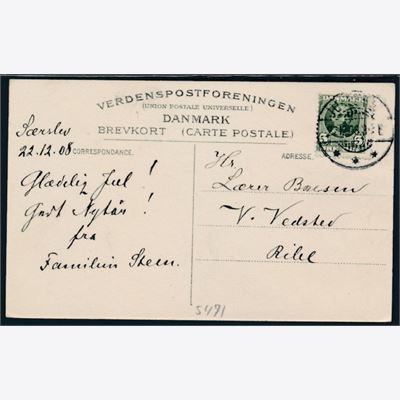 VERDENSPOSTFORENINGEN
(UNION POSTALE UNIVERSELLE)
DANMARK
BREVKORT (CARTE POSTALE)
CORRESPONDANCE.
ADRESSE.
Særslev
22.12.08
Glædelig Jul!
Godt Nytår!
fra
Familien Steen.
Hr.
Lærer
V. Vedsted
Ribe
5471